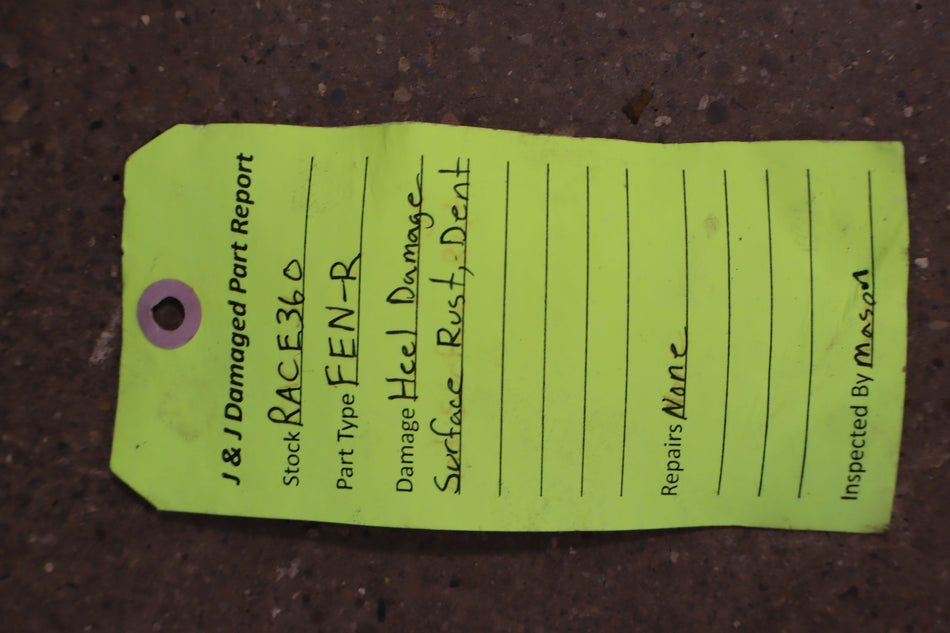 J & J Damaged Part Report
Stock RACE360
Part Type FEN-R
Damage Heel Damage
Surface Rust, Dent
Repairs None
Inspected By Mason